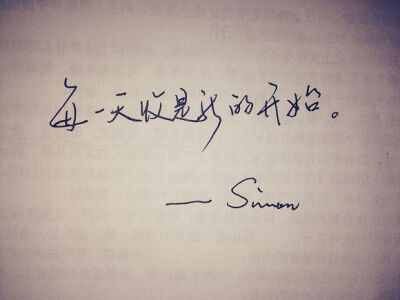 每一天都是新的开始。
— Simon